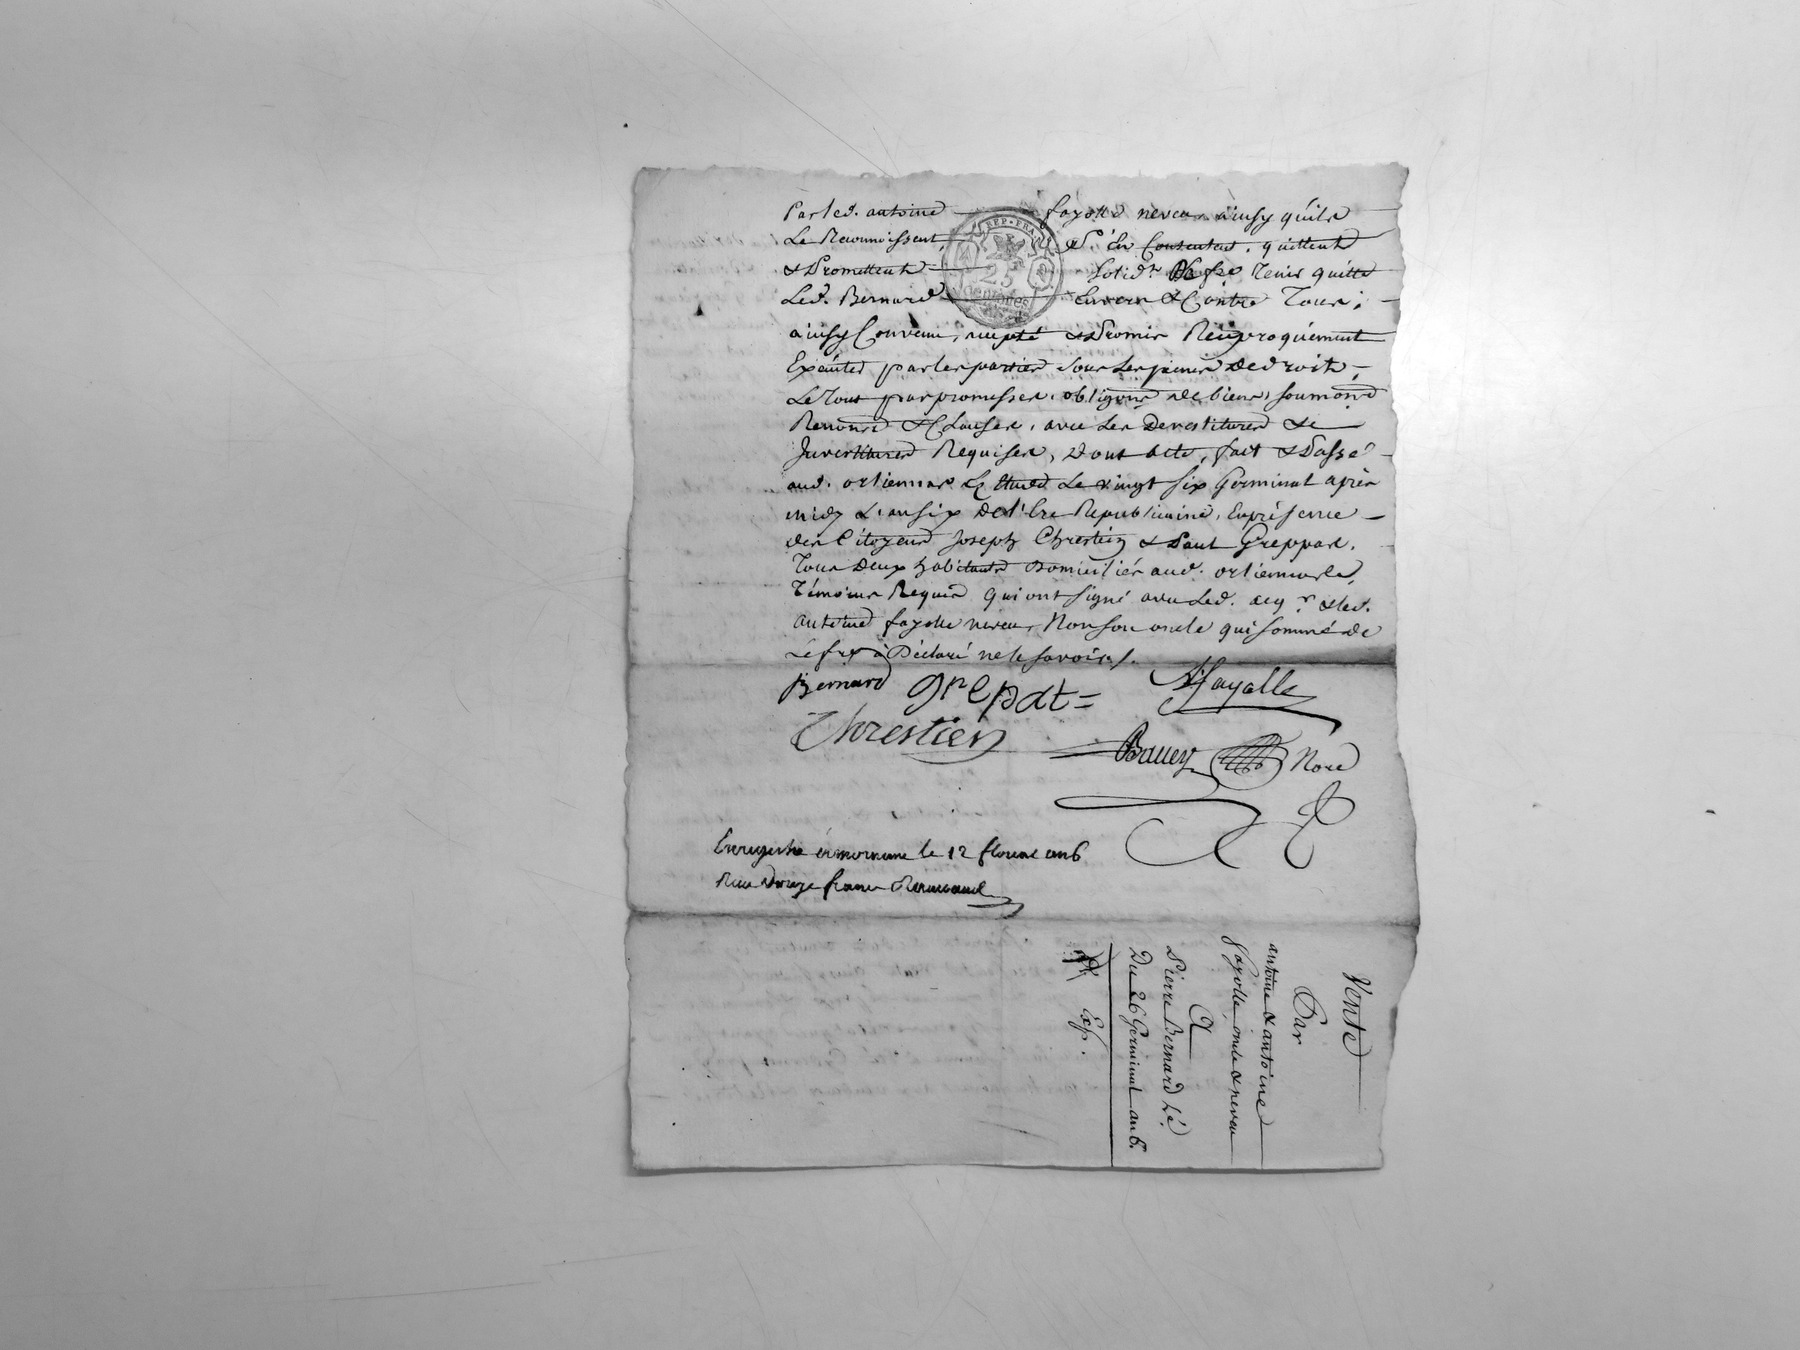 Par led. antoine fayolle neveu ainsy qu'ils
Le Reconnoissent, & s'en Contentent, quittent
& Promettent solid.t de fre tenir quitte
Led. Bernard Envers & Contre Tous;
ainsy Convenu, accepté & Promis Reciproquement
Exécuter par les parties sous les peines de droit,
Le Tout par promesses, obligons de biens, soumons
Renons & Clauses, avec les Devestitures &
Investitures Requises, dont acte, fait & Passé
aud. orliennas Le vingt six Germinal après
midy L'an six de l'Ere Republicaine, En présence
des Citoyens Joseph Chrestien & Paul Greppat,
Tous Deux habitants Domiciliés aud. orliennas,
Témoins Requis qui ont signé avec Led. acq.r & led.
antoine fayolle neveu, Non son oncle qui sommé de
Le fre à Déclaré ne le savoir./.
Bernard grepat = A fayolle
Chrestien
Bruey Nore
Enregistré à mornant le 12 floreal an 6
Recu douze francs
REP. FRA.
25
centimes
Vente
Par
antoine & antoine
Fayolle, oncle & neveu
A
Pierre Bernard
Du 26 Germinal an 6.
Exp.